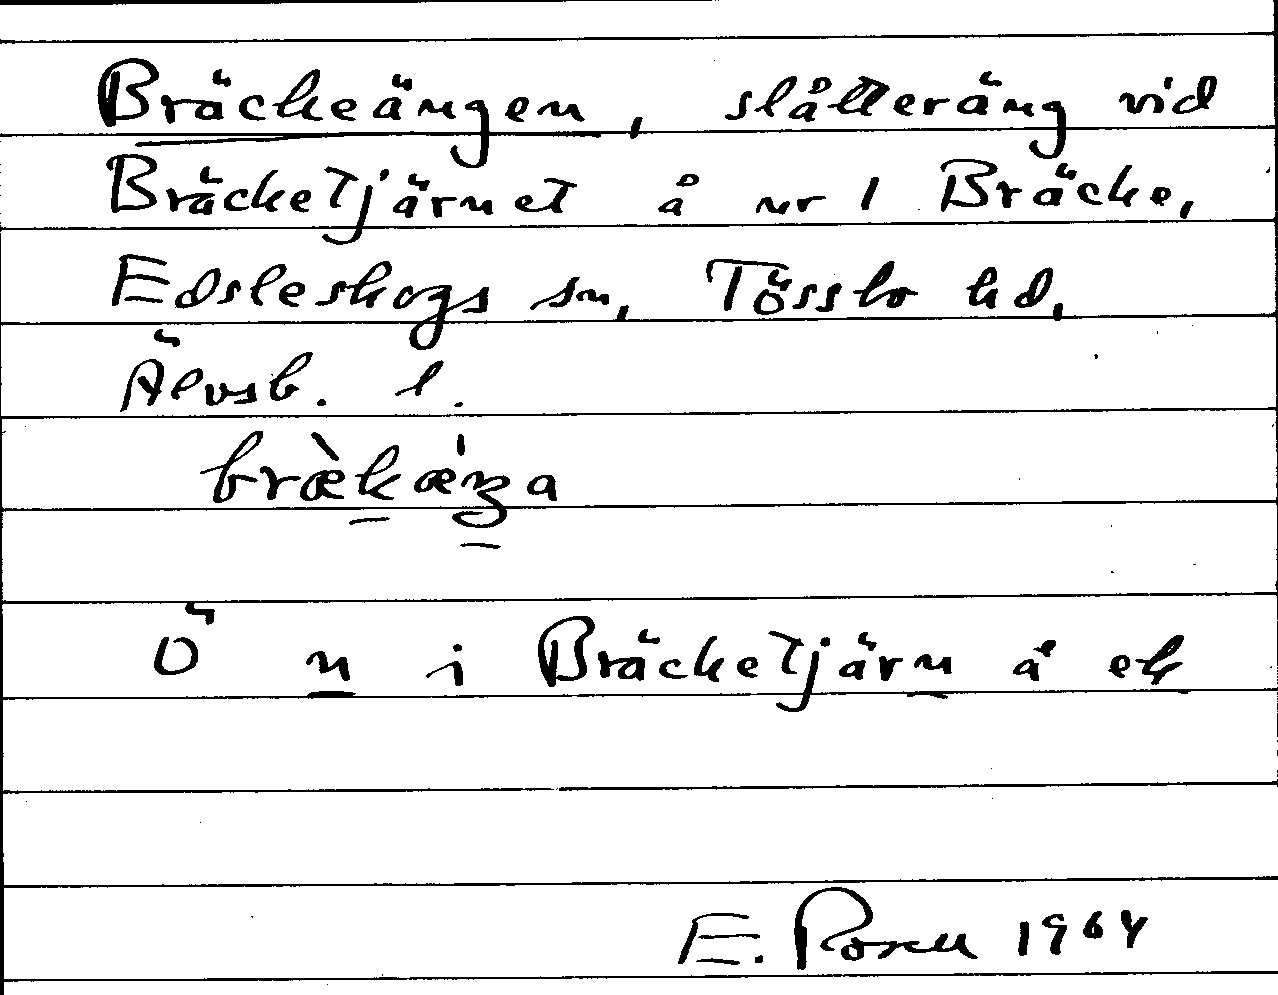 Bräckeängen, slåtteräng vid
Bräcketjärnet å nr 1 Bräcke,
Edsleskogs sn, Tössbo hd,
Älvsb. l.
bræ̀kæ̍ŋa
Ö n i Bräcketjärn å ek
E. Rosell 1964